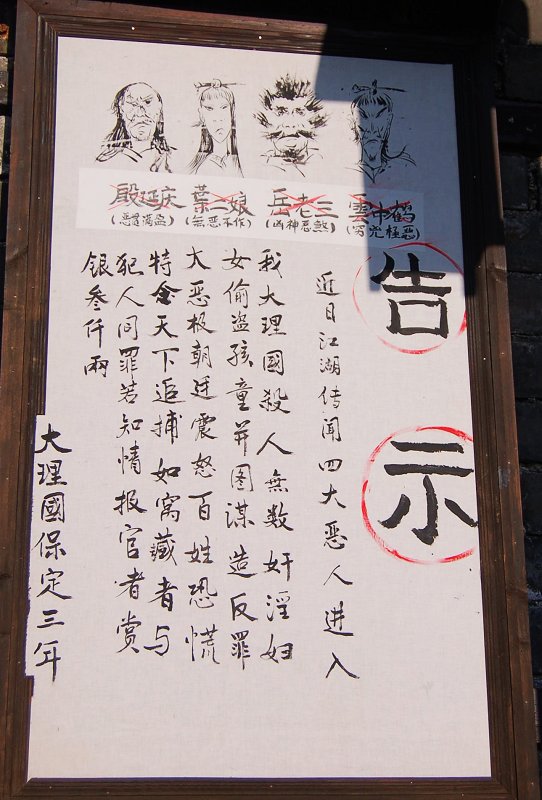 殷延庆 葉二娘 岳老三 雲中鹤
(恶贯满盈) (無恶不作) (凶神恶煞) (穷兇極恶)
告示
近日江湖传闻四大恶人进入
我大理國殺人無数奸淫妇
女偷盗孩童并图谋造反罪
大恶极朝廷震怒百姓恐慌
特令天下追捕如窝藏者与
犯人同罪若知情报官者赏
銀叁仟兩
大理國保定三年